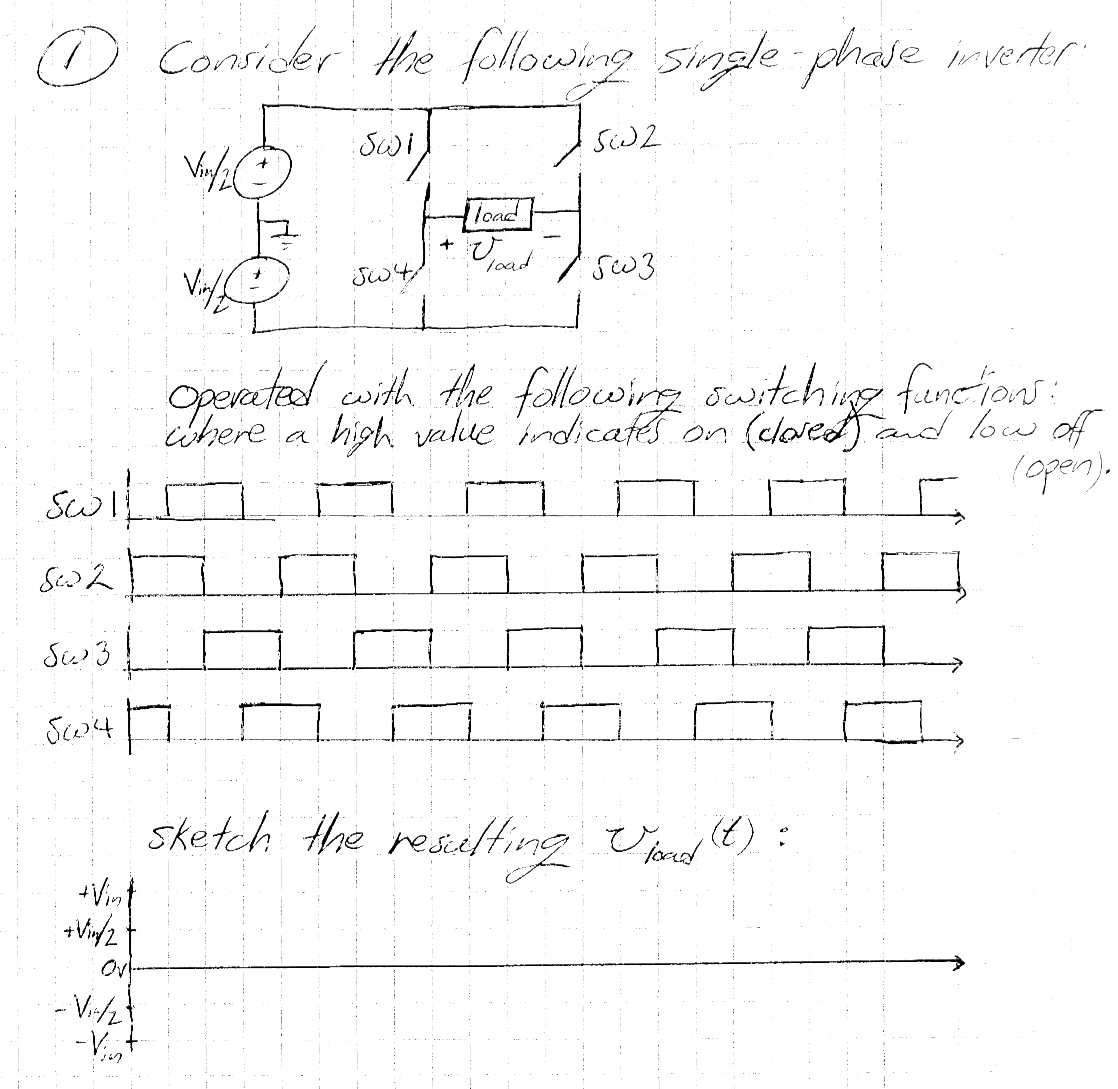 ① Consider the following single-phase inverter:
SW1
SW2
Vin/2
+
-
load
+ Vload -
Vin/2
+
-
SW4
SW3
operated with the following switching functions:
where a high value indicates on (closed) and low off
(open).
SW1
SW2
SW3
SW4
sketch the resulting Vload(t):
+Vin
+Vin/2
0v
-Vin/2
-Vin